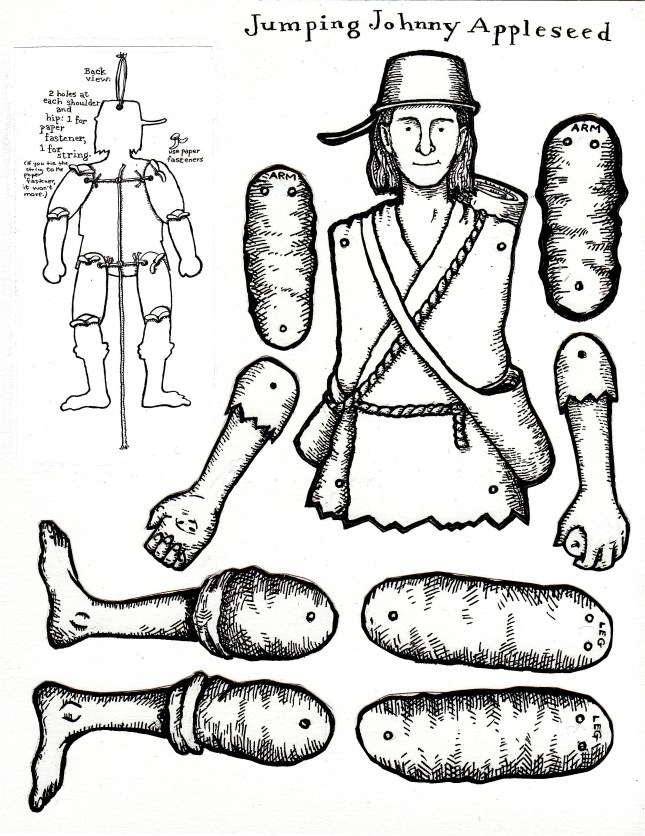 Jumping Johnny Appleseed
Back
view:
2 holes at
each shoulder
and
hip: 1 for
paper
fastener,
1 for
string.
(if you tie the
string to the
paper
fastener,
it won't
move.)
use paper
fasteners
ARM
ARM
LEG
LEG